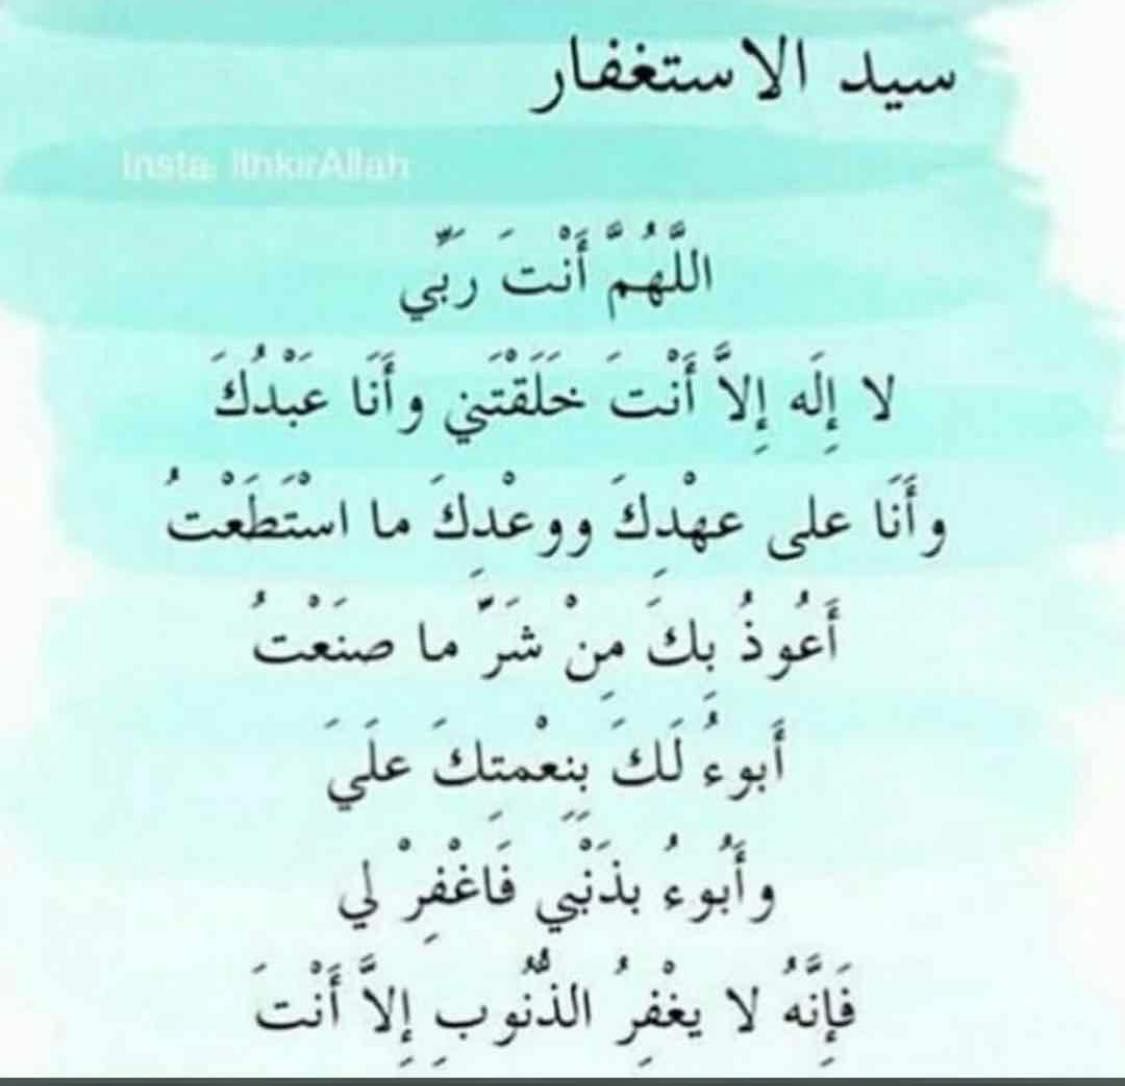 سيد الاستغفار
Insta: IthkirAllah
اللَّهُمَّ أَنْتَ رَبِّي
لا إِلَه إِلاَّ أَنْتَ خَلَقْتَني وأَنَا عَبْدُكَ
وأَنَا على عهْدِكَ ووعْدِكَ ما اسْتَطَعْتُ
أَعُوذُ بِكَ مِنْ شَرِّ ما صنَعْتُ
أَبوءُ لَكَ بِنِعْمتِكَ علَيَ
وأَبُوءُ بذَنْبي فَاغْفِرْ لي
فَإِنَّهُ لا يغْفِرُ الذُّنُوبِ إِلاَّ أَنْتَ